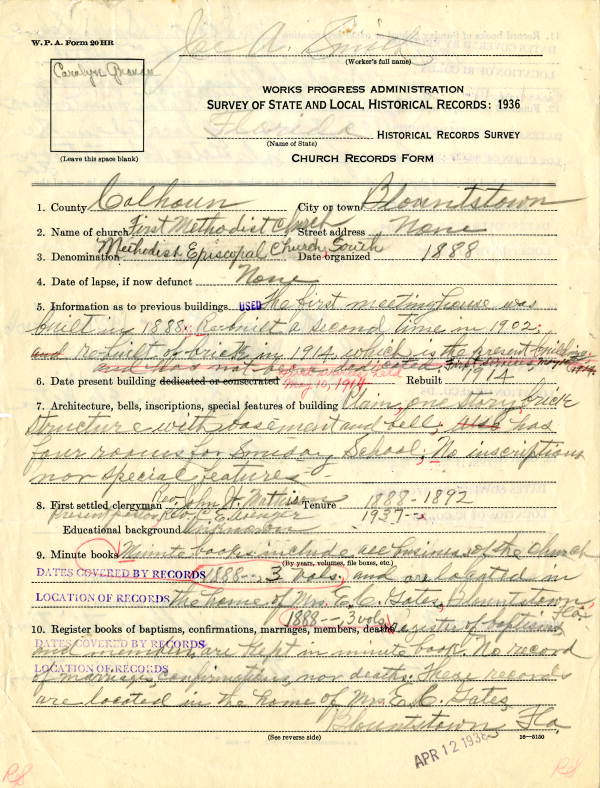 W. P. A. Form 20 HR
Joe A. Smith
(Worker's full name)
(Leave this space blank)
WORKS PROGRESS ADMINISTRATION
SURVEY OF STATE AND LOCAL HISTORICAL RECORDS: 1936
Florida HISTORICAL RECORDS SURVEY
(Name of State)
CHURCH RECORDS FORM
1. County Calhoun City or town Blountstown
2. Name of church First Methodist Church Street address None
3. Denomination Methodist Episcopal Church, South Date organized 1888
4. Date of lapse, if now defunct None
5. Information as to previous buildings USED The first meetinghouse was
built in 1888; Rebuilt a second time in 1902;
and rebuilt of brick in 1914 which is the present building
and has not been dedicated First services, May 10, 1914.
6. Date present building dedicated or consecrated held May 10, 1914 Rebuilt 1914
7. Architecture, bells, inscriptions, special features of building Plain, one story, brick
structure with basement and bell; Also has
four rooms for Sunday School; No inscriptions
nor special features
8. First settled clergyman Rev. John W. Tenure 1888-1892
Present pastor Rev. E. 1937-
Educational background Unknown
9. Minute books Minute books include all business of the church
(By years, volumes, file boxes, etc.)
DATES COVERED BY RECORDS 1888- 3 vols., and are located in
LOCATION OF RECORDS the home of Mrs. E. C. Gates, Blountstown, Fla.
1888--3 vols.
10. Register books of baptisms, confirmations, marriages, members, deaths Register of baptisms
DATES COVERED BY RECORDS
and members are kept in minute book. No record
LOCATION OF RECORDS
of marriages, confirmations, nor deaths. These records
are located in the home of Mrs. E. C. Gates,
Blountstown, Fla.
(See reverse side)
16—5150
APR 12 1938